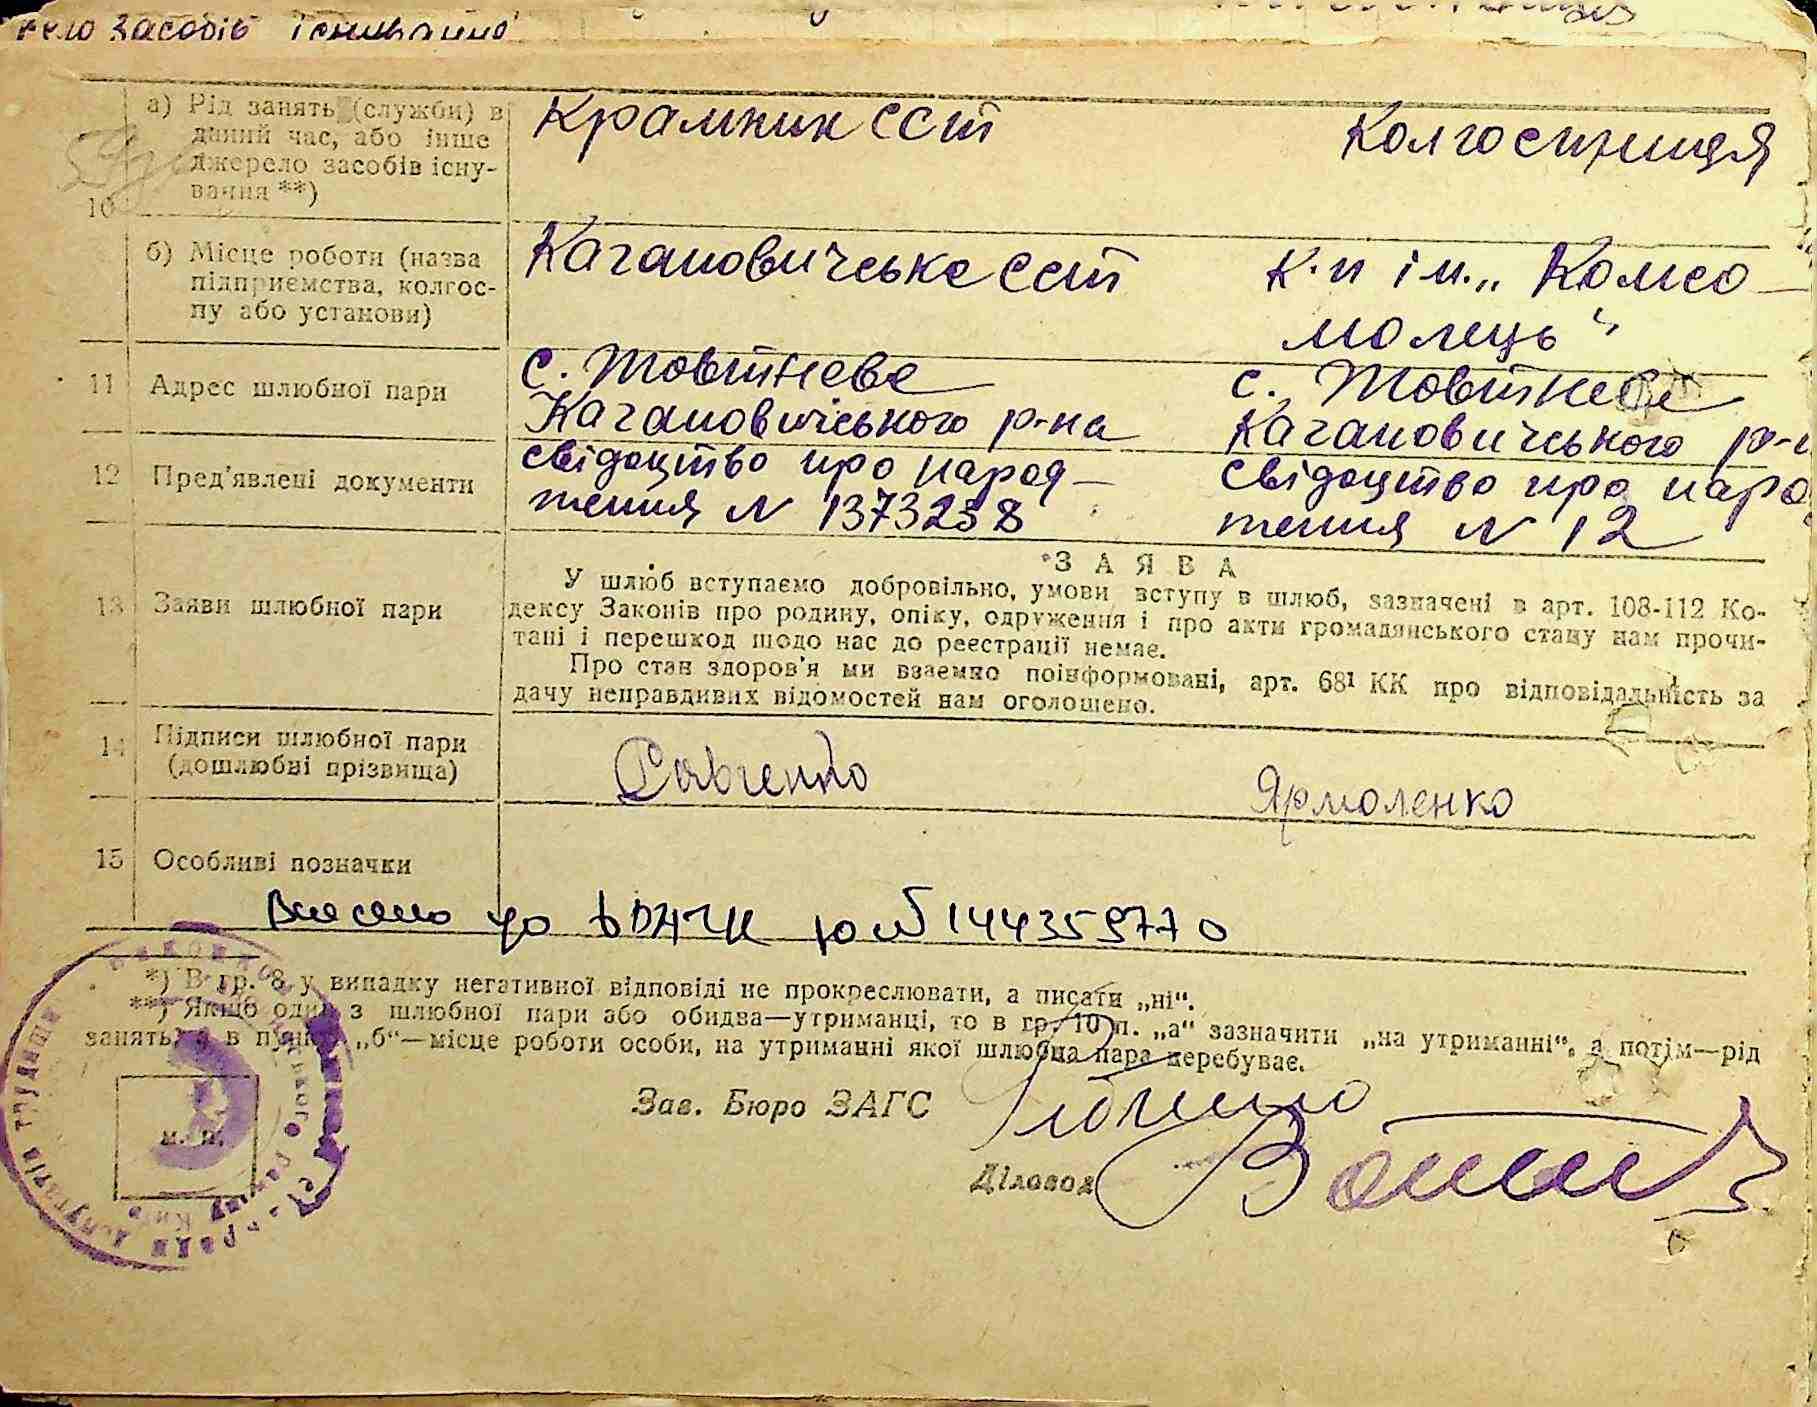 засобів існування
а) Рід занять (служби) в
даний час, або інше
джерело засобів існу-
вання **)
10
Крамник ССТ
Колгоспниця
б) Місце роботи (назва
підприємства, колгос-
пу або установи)
Кагановичське ССТ
к-п ім. „Комсо-
молець"
11 Адрес шлюбної пари
с. Жовтневе
Кагановичського р-на
с. Жовтневе
Кагановичського р-н
12 Пред'явлені документи
свідоцтво про народ-
ження N 1373258
свідоцтво про наро
ження N 12
13 Заяви шлюбної пари
ЗАЯВА
У шлюб вступаємо добровільно, умови вступу в шлюб, зазначені в арт. 108-112 Ко-
дексу Законів про родину, опіку, одруження і про акти громадянського стану нам прочи-
тані і перешкод щодо нас до реєстрації немає.
Про стан здоров'я ми взаємно поінформовані, арт. 68¹ КК про відповідальність за
дачу неправдивих відомостей нам оголошено.
14 Підписи шлюбної пари
(дошлюбні прізвища)
Савченко
Ярмоленко
15 Особливі позначки
Внесено до 144359770
*) В гр. 8 у випадку негативної відповіді не прокреслювати, а писати „ні".
**) Якщо один з шлюбної пари або обидва—утриманці, то в гр. 10 п. „а" зазначити „на утриманні", а потім—рід
занять, а в пункті „б"—місце роботи особи, на утриманні якої шлюбна пара перебуває.
Зав. Бюро ЗАГС
Діловод
м. п.
депутатів трудящих